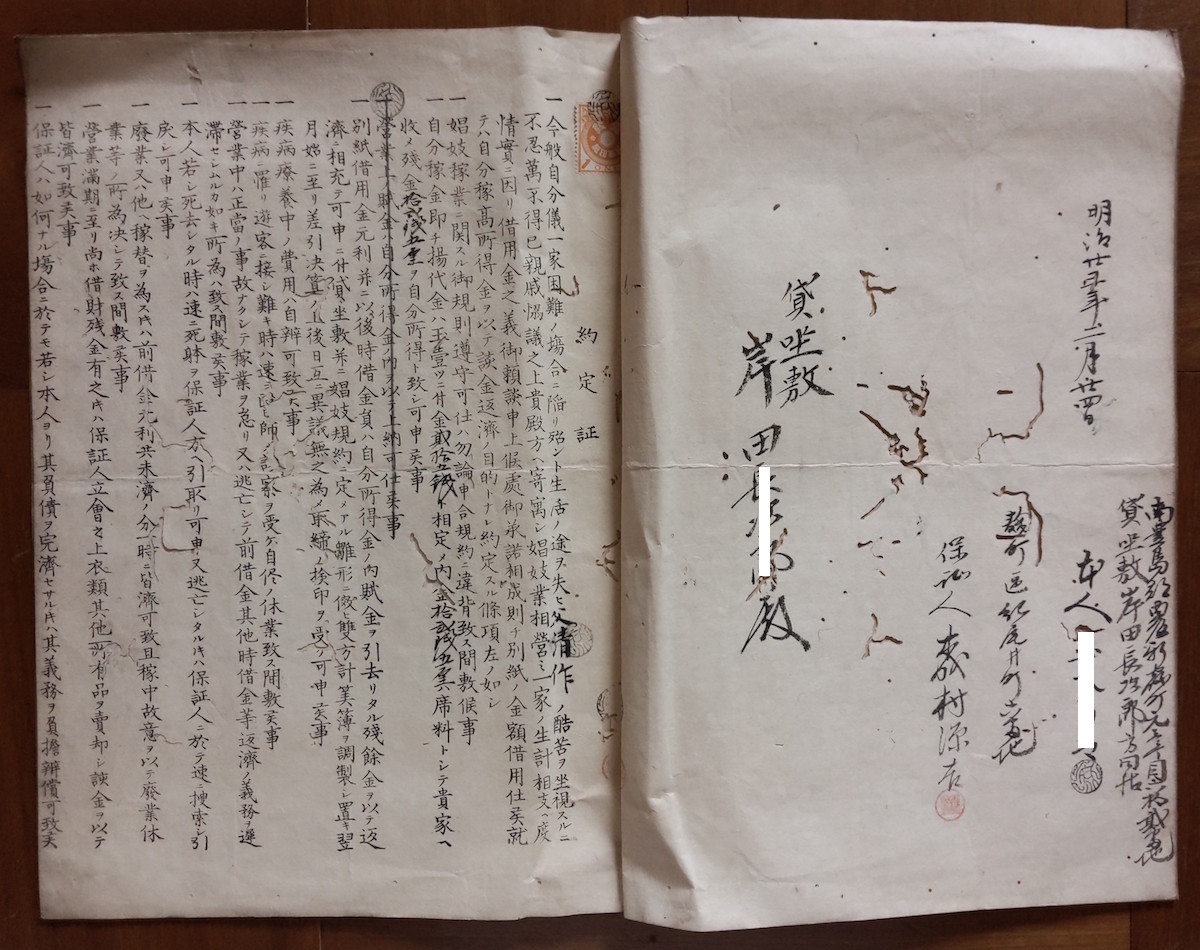 約定証
一今般自分儀一家困難ノ塲合ニ陥リ殆ント生活ノ途ヲ失ヒ父清作ノ酷苦ヲ坐視スルニ
不忍萬不得已親戚協議之上貴殿方ヘ寄寓シ娼妓業相營ミ一家ノ生計相支ヘ度
情實ニ因リ借用金之義御頼談申上候處御承諾相成則チ別紙ノ金額借用仕候就
テハ自分稼高所得金ヲ以テ該金返濟目的トナシ約定スル條項左ノ如シ
一娼妓稼業ニ関スル御規則遵守可仕ハ勿論申合規約ニ違背致ス間敷候事
一自分稼金即チ揚代金ハ玉壹ツニ付金貳拾五錢ト相定メ内金拾貳錢五厘席料トシテ貴家ヘ
収メ残金拾貳錢五厘ヲ自分所得ト致シ可申候事
一營業上ノ賦金ハ自分所得金ノ内ヲ以テ上納可仕候事
一別紙借用金元利并ニ以後時借金負ハ自分所得金ノ内賦金ヲ引去リタル残餘金ヲ以テ返
濟ニ相充テ可申ニ付貸坐敷并ニ娼妓規約ニ定メアル雛形ニ倣ヒ雙方計算簿ヲ調製シ置キ翌
月始ニ至リ差引決算ノ上後日互ニ異議無之為メ取締ノ検印ヲ受ケ可申候事
一疾病療養中ノ費用ハ自辨可致候事
一疾病ニ罹リ遊客ニ接シ難キ時ハ速ニ醫師ノ診察ヲ受ケ自侭ノ休業致ス間敷候事
一營業中ハ正當ノ事故ナクシテ稼業ヲ怠リ又ハ逃亡シテ前借金其他時借金等返濟ノ義務ヲ遅
滞セシムルカ如キ所為ハ致ス間敷候事
一本人若シ死去シタル時ハ速ニ死躰ヲ保証人方ヘ引取リ可申又逃亡シタルキハ保証人ニ於テ速ニ捜索シ引
戻シ可申候事
一廢業又ハ他ヘ稼替ヲ為スキハ前借金元利共未濟ノ分一時ニ皆濟可致且稼中故意ヲ以テ廢業休
業等ノ所為决シテ致ス間敷候事
一營業満期ニ至リ尚ホ借財残金有之キハ保証人立會之上衣類其他所有品ヲ賣却シ該金ヲ以テ
皆濟可致候事
一保証人ハ如何ナル塲合ニ於テモ若シ本人ヨリ其負債ヲ完濟セサルキハ其義務ヲ負擔辨償可致候
南豊島郡内藤新宿町
貸坐敷岸田長次郎方同居
本人
麹町區紀尾井町六番地
保証人 磯村源吉
明治廿五年二月廿四日
貸坐敷
岸田長次郎殿